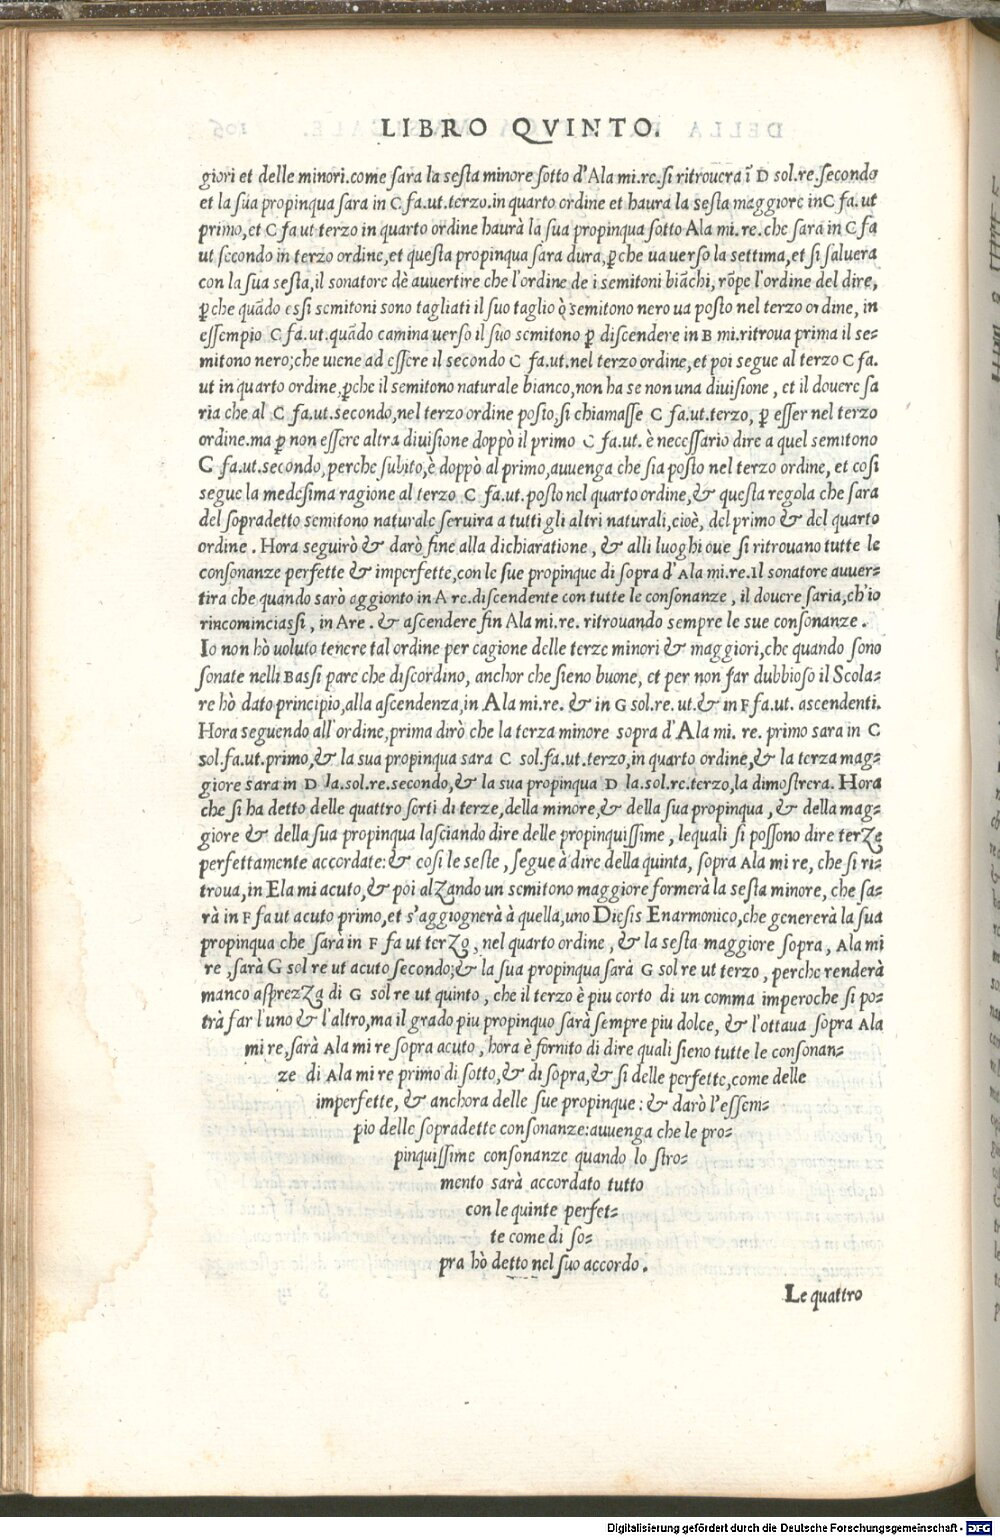 LIBRO QVINTO.
giori et delle minori.come sara la sesta minore sotto d'Ala mi.re.si ritrouera ĩ D sol.re.secondo
et la sua propinqua sara in C fa.ut.terzo.in quarto ordine et haura la sesta maggiore inC fa.ut
primo,et C fa ut terzo in quarto ordine haurà la sua propinqua sotto Ala mi.re.che sara in C fa
ut secondo in terzo ordine,et questa propinqua sara dura,ꝑche ua uerso la settima,et si saluera
con la sua sesta,il sonatore dè auuertire che l'ordine de i semitoni biãchi, rõpe l'ordine del dire,
ꝑche quãdo essi semitoni sono tagliati il suo taglio ò semitono nero ua posto nel terzo ordine, in
essempio C fa.ut.quãdo camina uerso il suo semitono ꝑ discendere in B mi.ritroua prima il se=
mitono nero;che uiene ad essere il secondo C fa.ut.nel terzo ordine,et poi segue al terzo C fa.
ut in quarto ordine,ꝑche il semitono naturale bianco,non ha se non una diuisione, et il douere sa
ria che al C fa.ut.secondo,nel terzo ordine posto,si chiamasse C fa.ut.terzo, ꝑ esser nel terzo
ordine.ma ꝑ non essere altra diuisione doppò il primo C fa.ut. è necessario dire a quel semitono
C fa.ut.secondo, perche subito,è doppò al primo,auuenga che sia posto nel terzo ordine, et cosi
segue la medesima ragione al terzo C fa.ut.posto nel quarto ordine,& questa regola che sara
del sopradetto semitono naturale seruira a tutti gli altri naturali,cioè, del primo & del quarto
ordine. Hora seguirò & darò fine alla dichiaratione, & alli luoghi oue si ritrouano tutte le
consonanze perfette & imperfette,con le sue propinque di sopra d'Ala mi.re.Il sonatore auuer=
tira che quando sarò aggionto in A re.discendente con tutte le consonanze, il douere saria,ch'io
rincominciassi, in Are. & ascendere fin Ala mi.re. ritrouando sempre le sue consonanze.
Io non hò uoluto tenere tal ordine per cagione delle terze minori & maggiori,che quando sono
sonate nelli Bassi pare che discordino, anchor che sieno buone, et per non far dubbioso il Scola=
re hò dato principio,alla ascendenza,in Ala mi.re. & in G sol.re.ut.& in F fa.ut. ascendenti.
Hora seguendo all'ordine,prima dirò che la terza minore sopra d'Ala mi. re. primo sara in C
sol.fa.ut.primo,& la sua propinqua sara C sol.fa.ut.terzo,in quarto ordine,& la terza mag=
giore sara in D la.sol.re.secondo,& la sua propinqua D la.sol.re.terzo,la dimostrera. Hora
che si ha detto delle quattro sorti di terze,della minore,& della sua propinqua, & della mag=
giore & della sua propinqua lasciando dire delle propinquissime, lequali si possono dire terze
perfettamente accordate:& cosi le seste, segue à dire della quinta, sopra Ala mi re, che si ri=
troua,in Ela mi acuto,& poi alzando un semitono maggiore formerà la sesta minore, che sa=
rà in F fa ut acuto primo,et s'aggiognerà à quella,uno Diesis Enarmonico,che genererà la sua
propinqua che sarà in F fa ut terzo, nel quarto ordine, & la sesta maggiore sopra, Ala mi
re, sarà G sol re ut acuto secondo;& la sua propinqua sarà G sol re ut terzo, perche renderà
manco asprezza di G sol re ut quinto, che il terzo è piu corto di un comma imperoche si po=
trà far l'uno & l'altro,ma il grado piu propinquo sarà sempre piu dolce, & l'ottaua sopra Ala
mi re, sarà Ala mi re sopra acuto, hora è fornito di dire quali sieno tutte le consonan=
ze di Ala mi re primo di sotto,& di sopra,& si delle perfette,come delle
imperfette, & anchora delle sue propinque: & darò l'essem=
pio delle sopradette consonanze:auuenga che le pro=
pinquissime consonanze quando lo stro=
mento sarà accordato tutto
con le quinte perfet=
te come di so=
pra hò detto nel suo accordo.
Le quattro
Digitalisierung gefördert durch die Deutsche Forschungsgemeinschaft - DFG